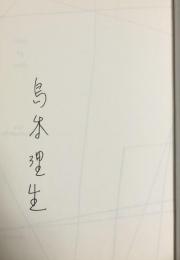 島本理生